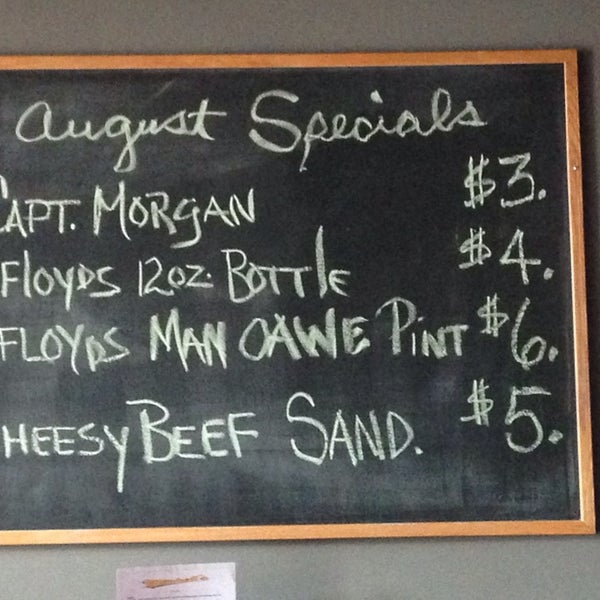 August Specials
CAPT. MORGAN $3.
FLOYDS 12oz. BOTTlE $4.
FLOYDS MAN OAWE PiNT $6.
HEESY BEEF SAND. $5.